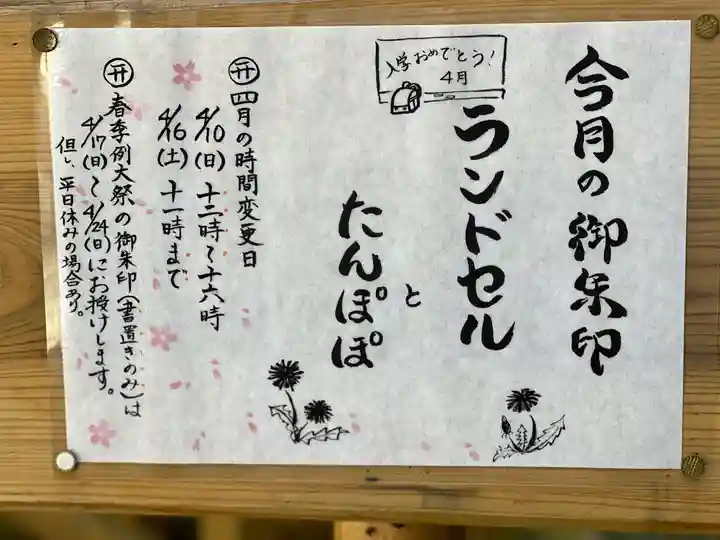 今月の御朱印
入学おめでとう!
4月
ランドセル
と
たんぽぽ
㊉ 四月の時間変更日
4/10(日)十二時〜十六時
4/16(土)十一時まで
春季例大祭の御朱印(書置きのみ)は
4/17(日)〜4/24(日)にお授けします。
但し、平日休みの場合あり。